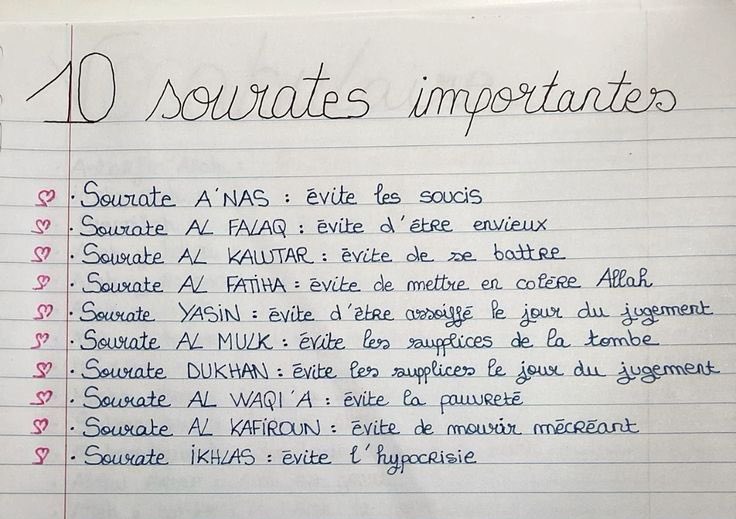 10 sourates importantes
• Sourate A'NAS : évite les soucis
• Sourate AL FALAQ : évite d'être envieux
• Sourate AL KAWTAR : évite de se battre
• Sourate AL FATIHA : évite de mettre en colère Allah
• Sourate YASIN : évite d'être assoiffé le jour du jugement
• Sourate AL MULK : évite les supplices de la tombe
• Sourate DUKHAN : évite les supplices le jour du jugement
• Sourate AL WAQI'A : évite la pauvreté
• Sourate AL KAFIROUN : évite de mourir mécréant
• Sourate IKHLAS : évite l'hypocrisie